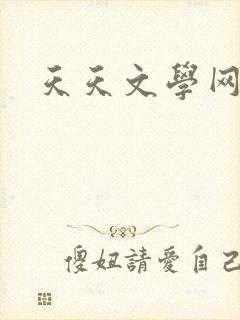 天天文學网
傻妞請愛自己